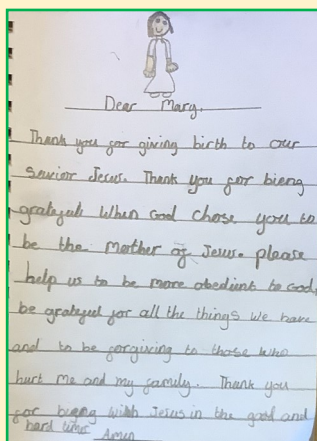 Dear Mary.
Thank you for giving birth to our
savior Jesus. Thank you for bieng
grateful when God chose you to
be the mother of Jesus. please
help us to be more obedient to God,
be grateful for all the things we have
and to be forgiving to those who
hurt me and my family. Thank you
for bieng with Jesus in the good and
hard times Amen